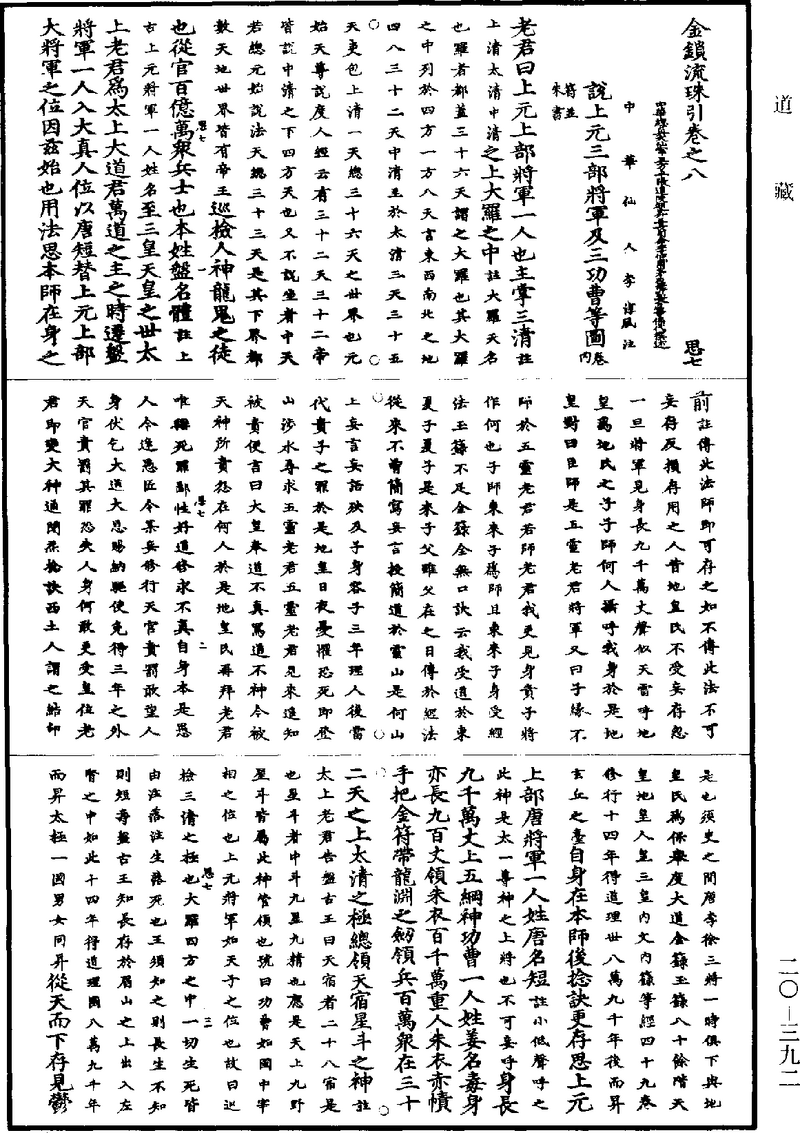 道藏
金鎖流珠引卷之八
思七
中華仙人李淳風注
說上元三部將軍及三功曹等圖卷內
符並朱書
老君曰上元上部將軍一人也主掌三清註
上清太清中清之上大羅之中註大羅天名
也羅者都蓋三十六天謂之大羅也其大羅
之中列於四方一方八天言東西南北之地
四八三十二天中清至於太清三天三十五
天更包上清一天總三十六天之世界也元
始天尊說度人經云有三十二天三十二帝
皆説中清之下四方天也又不説坐者中天
若總元始説法天總三十三天是其下界都
數天地世界皆有帝王巡檢人神龍鬼之徒
也從官百億萬衆兵士也本姓盤名體註上
古上元將軍一人姓名至三皇天皇之世太
上老君爲太上大道君萬道之主之時遷盤
將軍一人入大真人位以唐短替上元上部
大將軍之位因兹始也用法思本師在身之
前註傳此法師即可存之如不傳此法不可
妄存反損存用之人昔地皇氏不受妄存忽
一旦將軍見身長九千萬丈聲似天雷呼地
皇爲地氏之子子師何人攝呼我身於是地
皇對曰臣師是五靈老君將軍又曰子緣不
師於五靈老君若師老君我更見身責子將
作何也子師東來子爲師且東來子身受經
法玉籙不足金籙全無口訣云我受道於東
夏子夏子是來子父雖父在之日傳於經法
從來不曾簡寫妄言投簡道於靈山是何山
上妄言妄語殃及子身容子三年理人後當
代責子之罪於是地皇日夜憂懼恐死即登
山涉水尋求五靈老君五靈老君見來造知
被責便言曰大皇奉道不真罵道不神今被
天神所責怨在何人於是地皇氏再拜老君
唯稱死罪鄙性好道修求不真自身本是愚
人今逢愚臣令某妄修行天官責罰敢望人
身伏乞大道大恩賜納驅使免得三年之外
天官責罰其罪恐失人身何敢更受皇位老
君即變大神通開
西土人謂之結印
是也須臾之間唐李徐三將一時俱下與地
皇氏爲保舉度大道金籙玉籙八十餘階天
皇地皇人皇三皇內文內籙等經四十九卷
修行十四年得道理世八萬九千年後而昇
玄丘之臺自身在本師後捻訣更存思上元
上部唐將軍一人姓唐名短註小低聲呼之
此神是太一尊神之上將也不可妄呼身長
九千萬丈上五綱神功曹一人姓姜名壽身
亦長九百丈領朱衣百千萬重人朱衣赤幘
手把金符帶龍淵之劒領兵百萬衆在三十
二天之上太清之極總領天宿星斗之神註
太上老君告盤古王曰天宿者二十八宿是
也星斗者中斗九星九精也應是天上九野
星斗皆屬此神管領也號曰功曹如國中宰
相之位也上元將軍如天子之位也故曰巡
檢三清之極也大羅四方之中一切生死皆
由注落注生落死也王須知之則長生不知
則短壽盤古王知長存於眉山之上出入左
腎之中如此十四年得道理國八萬九千年
而昇太極一國男女同昇從天而下存見鬱
思七 一
思七 二
思七 三
二〇-三九二